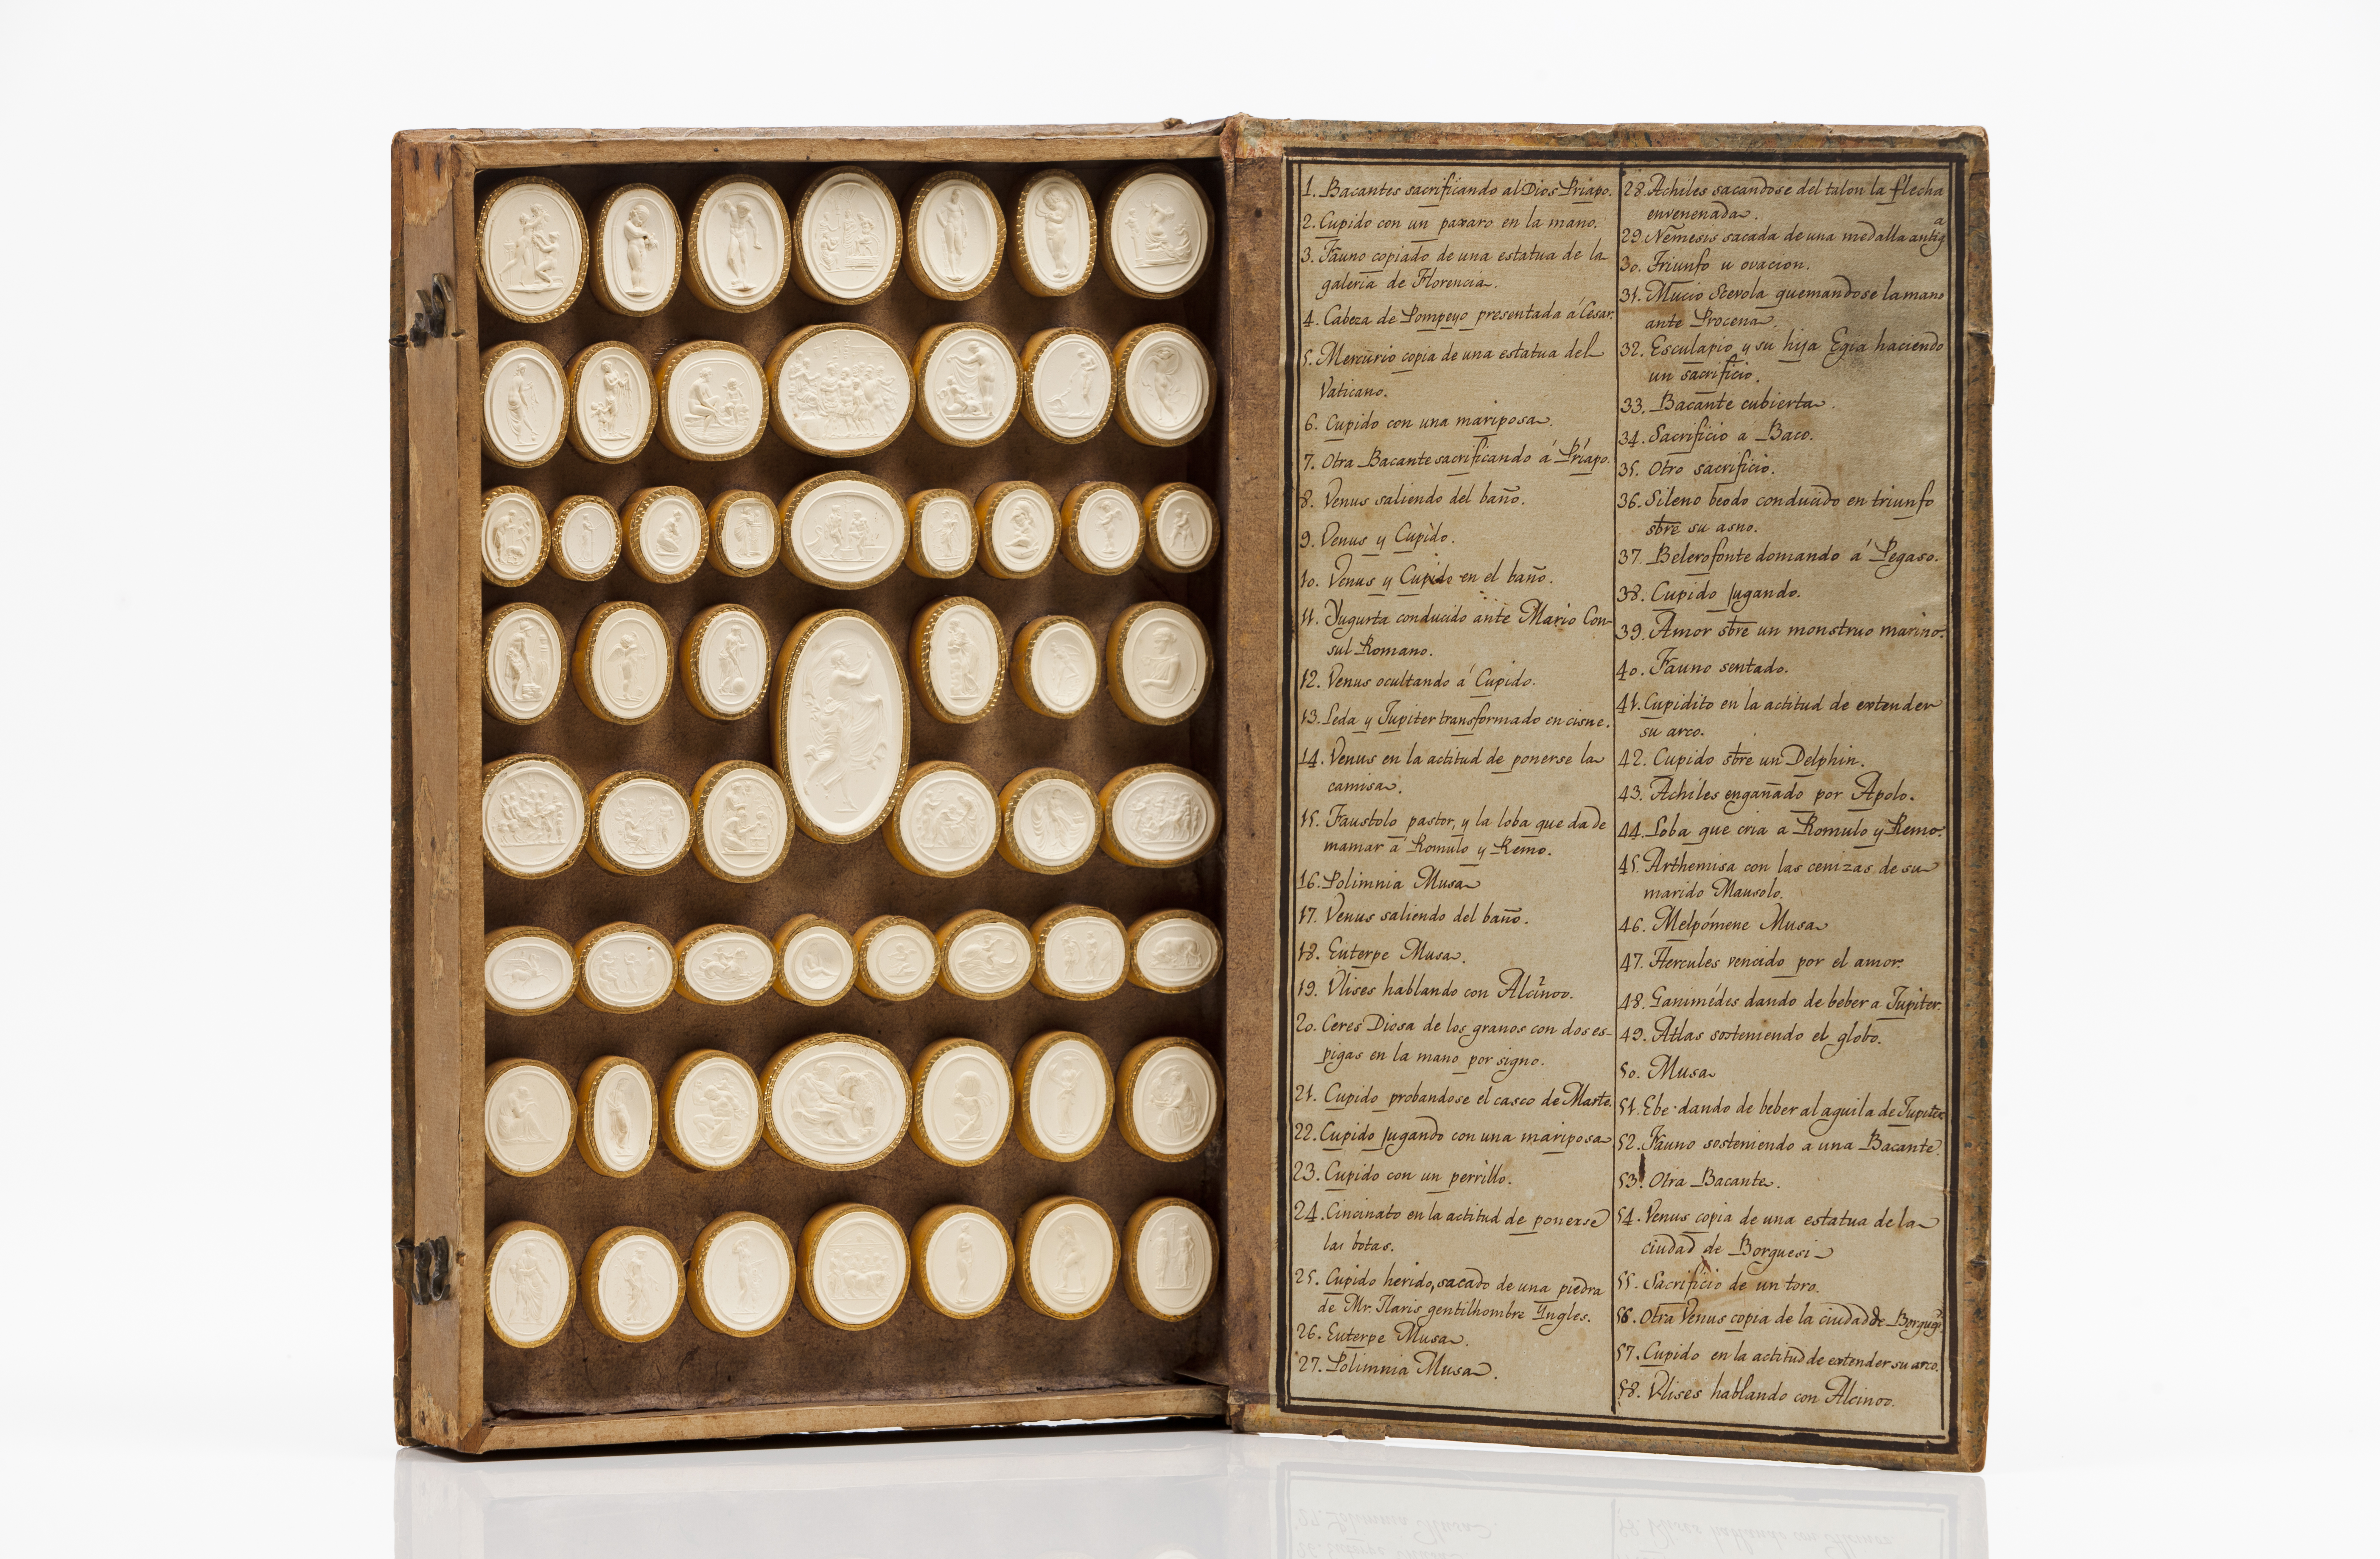 1. Bacantes sacrificando al Dios Priapo.
2. Cupido con un paxaro en la mano.
3. Fauno copiado de una estatua de la
galeria de Florencia.
4. Cabeza de Pompeyo presentada á César.
5. Mercurio copia de una estatua del
Vaticano.
6. Cupido con una mariposa.
7. Otra Bacante sacrificando á Príapo.
8. Venus saliendo del baño.
9. Venus y Cupido.
10. Venus y Cupido en el baño.
11. Yugurta conducido ante Mario Con-
sul Romano.
12. Venus ocultando á Cupido.
13. Leda y Jupiter transformado en cisne.
14. Venus en la actitud de ponerse la
camisa.
15. Faustolo pastor, y la loba que da de
mamar á Romulo y Remo.
16. Polimnia Musa
17. Venus saliendo del baño.
18. Euterpe Musa.
19. Vlises hablando con Alcinoo.
20. Ceres Diosa de los granos con dos es-
pigas en la mano por signo.
21. Cupido probandose el casco de Marte.
22. Cupido jugando con una mariposa
23. Cupido con un perrillo.
24. Cincinato en la actitud de ponerse
las botas.
25. Cupido herido, sacado de una piedra
de Mr. gentilhombre Yngles.
26. Euterpe Musa.
27. Polimnia Musa.
28. Achiles sacandose del talon la flecha
envenenada.
29. Nemesis sacada de una medalla antiga
30. Triunfo u ovacion.
31. Mucio Scevola quemandose la mano
ante Procena.
32. Esculapio y su hija Egia haciendo
un sacrificio.
33. Bacante cubierta.
34. Sacrificio a Baco.
35. Otro sacrificio.
36. Sileno beodo conducido en triunfo
sbre su asno.
37. Belerofonte domando á Pegaso.
38. Cupido jugando.
39. Amor sbre un monstruo marino.
40. Fauno sentado.
41. Cupidito en la actitud de extender
su arco.
42. Cupido sbre un Delphin.
43. Achiles engañado por Apolo.
44. Loba que cria a Romulo y Remo.
45. Arthemisa con las cenizas de su
marido Mausolo.
46. Melpómene Musa
47. Hercules vencido por el amor.
48. Ganimédes dando de beber a Jupiter.
49. Atlas sosteniendo el globo.
50. Musa
51. Ebe dando de beber al aguila de Jupiter
52. Fauno sosteniendo a una Bacante.
53. Otra Bacante.
54. Venus copia de una estatua de la
ciudad de Borguesi
55. Sacrificio de un toro.
56. Otra Venus copia de la ciudad de
57. Cupido en la actitud de extender su arco.
58. Vlises hablando con Alcinoo.